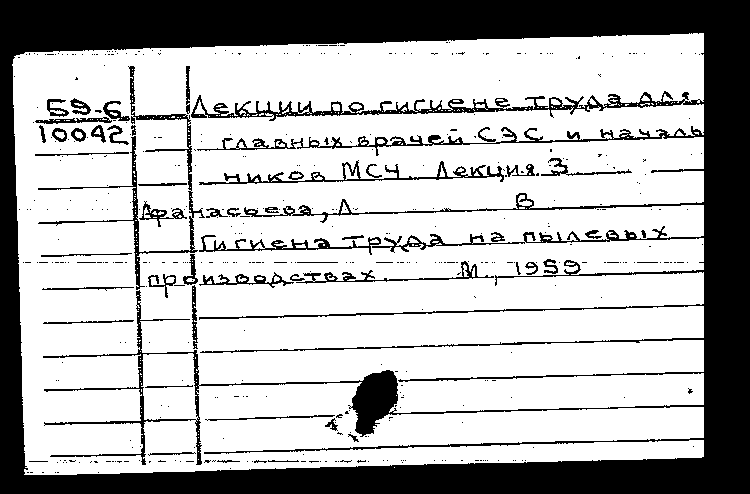 59-6 Лекции по гигиене труда для
10042 главных врачей СЭС и началь
ников МСЧ. Лекция 3
Афанасьева, Л В
Гигиена труда на пылевых
производствах. М., 1959